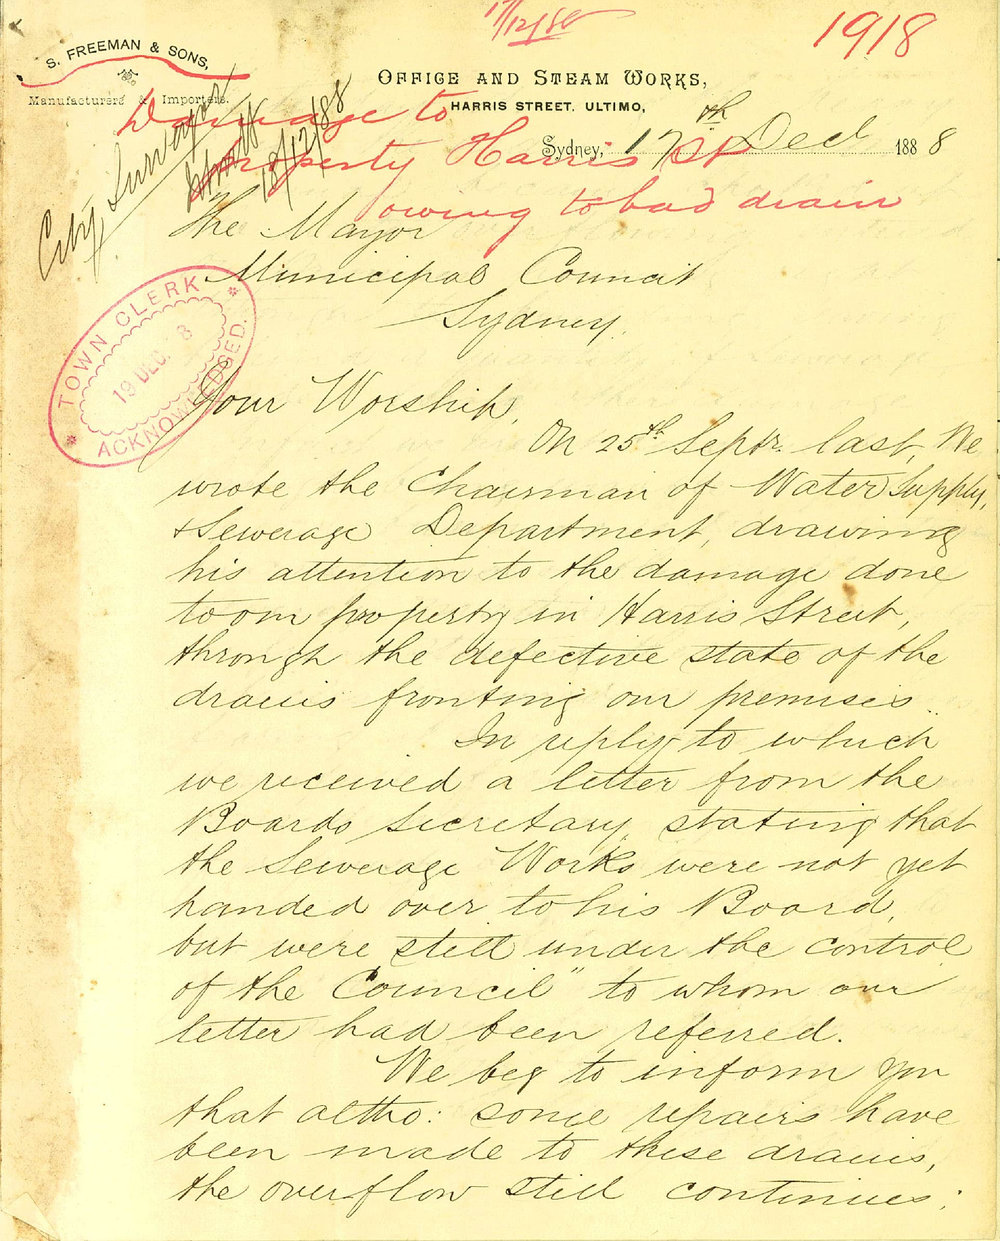 17/12/88
1918
S. FREEMAN & SONS,
Manufacturers & Importers.
OFFICE AND STEAM WORKS,
HARRIS STREET, ULTIMO,
Sydney, 17th Dec 1888
Damage to
property Harris St
owing to bad drain
City Surveyor
18/12/88
TOWN CLERK
19 DEC. 8
ACKNOWLEDGED.
The Mayor
Municipal Council
Sydney.
Your Worship,
On 25th Septr. last, We
wrote the Chairman of Water Supply,
& Sewerage Department, drawing
his attention to the damage done
to our property in Harris Street,
through the defective state of the
drains fronting our premises.
In reply to which
we received a letter from the
Boards Secretary, stating that
the Sewerage Works were not yet
handed over to his Board,
but were still under the control
of the Council" to whom our
letter had been referred.
We beg to inform you
that altho: some repairs have
been made to these drains,
the overflow still continues;